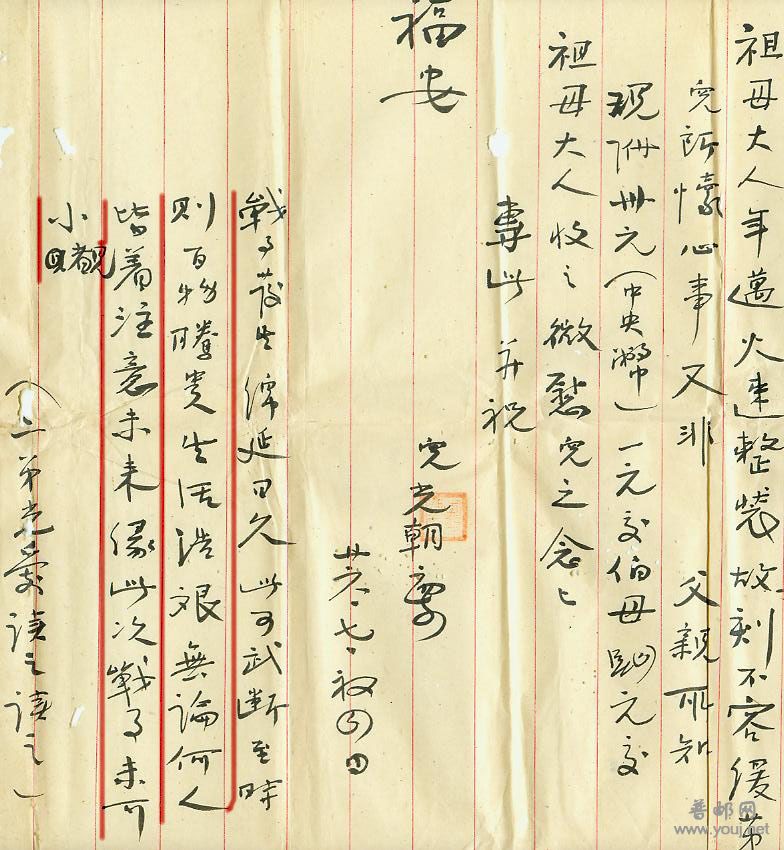 祖母大人年邁火速整裝故刻不容緩第
兒所懷心事又非 父親所知
現附卅元(中央幣)一元交伯母 元交
祖母大人收之微慰兒之念

專此 并祝
福安
兒光朝
廿六、七、初 日
戰事發生綿延日久此可武斷至時
則百物騰貴生活浩艱無論何人
皆着注意未来緣此次戰事未可
小覩
(二弟光 讀之讀之)
普邮网
www.youj.net